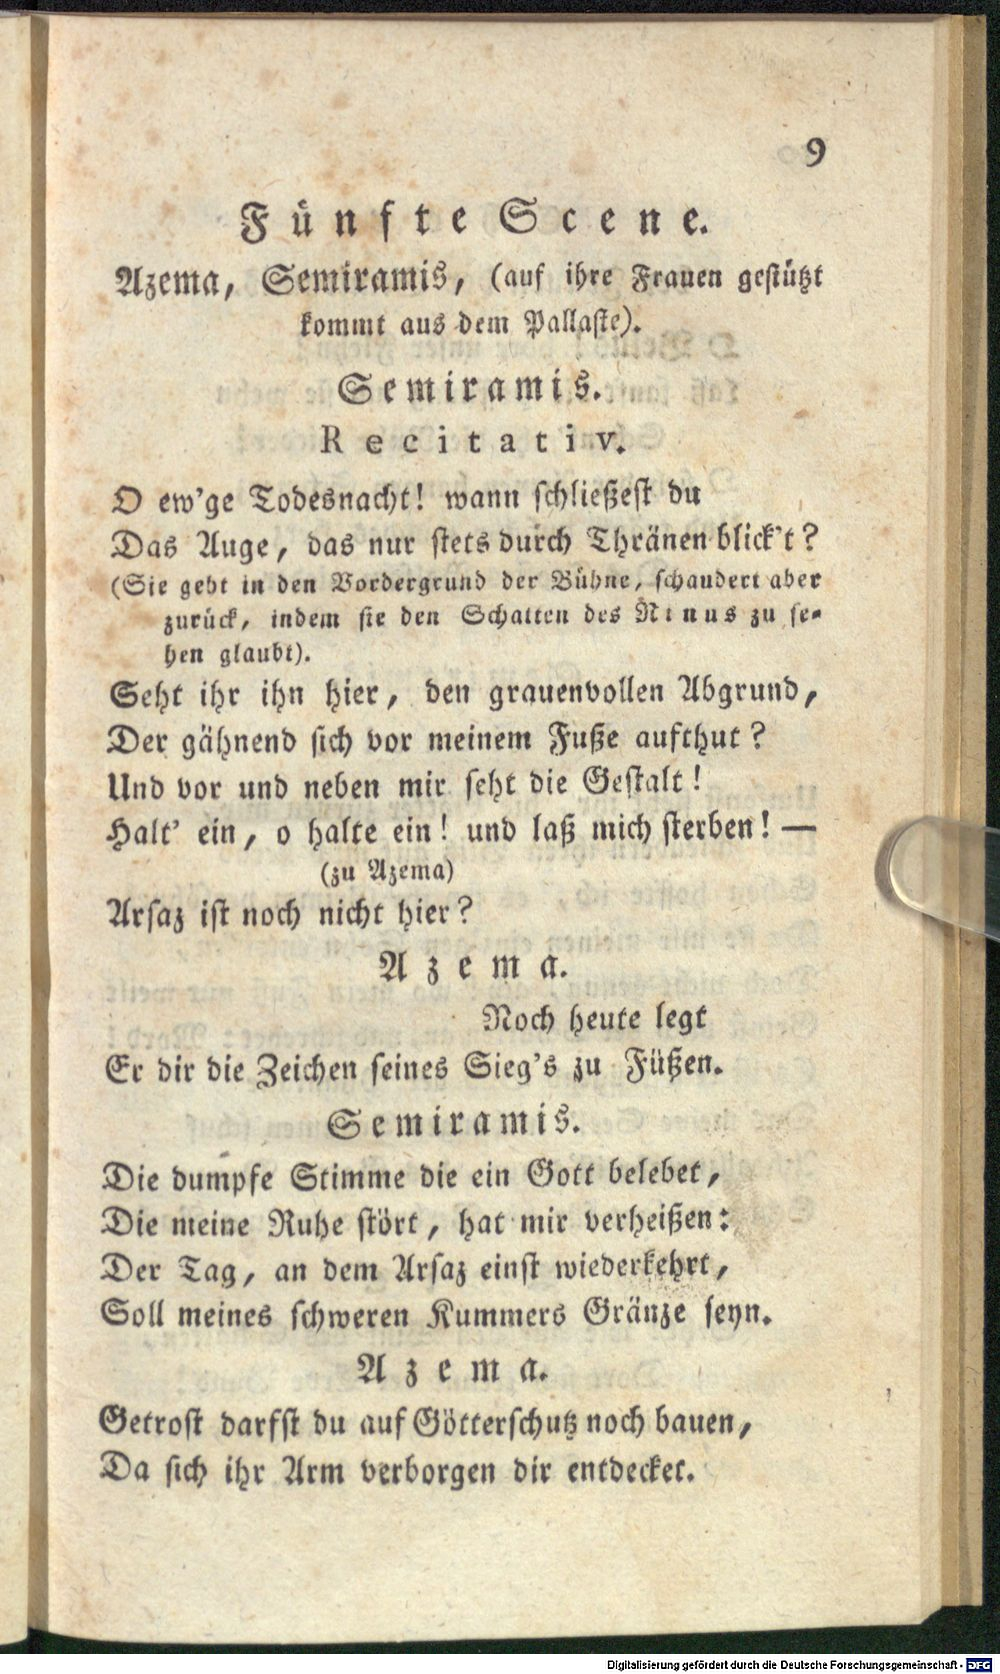 9
Fünfte Scene.
Azema, Semiramis, (auf ihre Frauen gestützt
kommt aus dem Pallaste).
Semiramis.
Recitativ.
O ew'ge Todesnacht! wann schließest du
Das Auge, das nur stets durch Thränen blick't?
(Sie geht in den Vordergrund der Bühne, schaudert aber
zurück, indem sie den Schatten des Ninus zu se-
hen glaubt).
Seht ihr ihn hier, den grauenvollen Abgrund,
Der gähnend sich vor meinem Fuße aufthut?
Und vor und neben mir seht die Gestalt!
Halt' ein, o halte ein! und laß mich sterben! —
(zu Azema)
Arsaz ist noch nicht hier?
Azema.
Noch heute legt
Er dir die Zeichen seines Sieg's zu Füßen.
Semiramis.
Die dumpfe Stimme die ein Gott belebet,
Die meine Ruhe stört, hat mir verheißen:
Der Tag, an dem Arsaz einst wiederkehrt,
Soll meines schweren Kummers Gränze seyn.
Azema.
Getrost darfst du auf Götterschutz noch bauen,
Da sich ihr Arm verborgen dir entdecket.
Digitalisierung gefördert durch die Deutsche Forschungsgemeinschaft - DFG